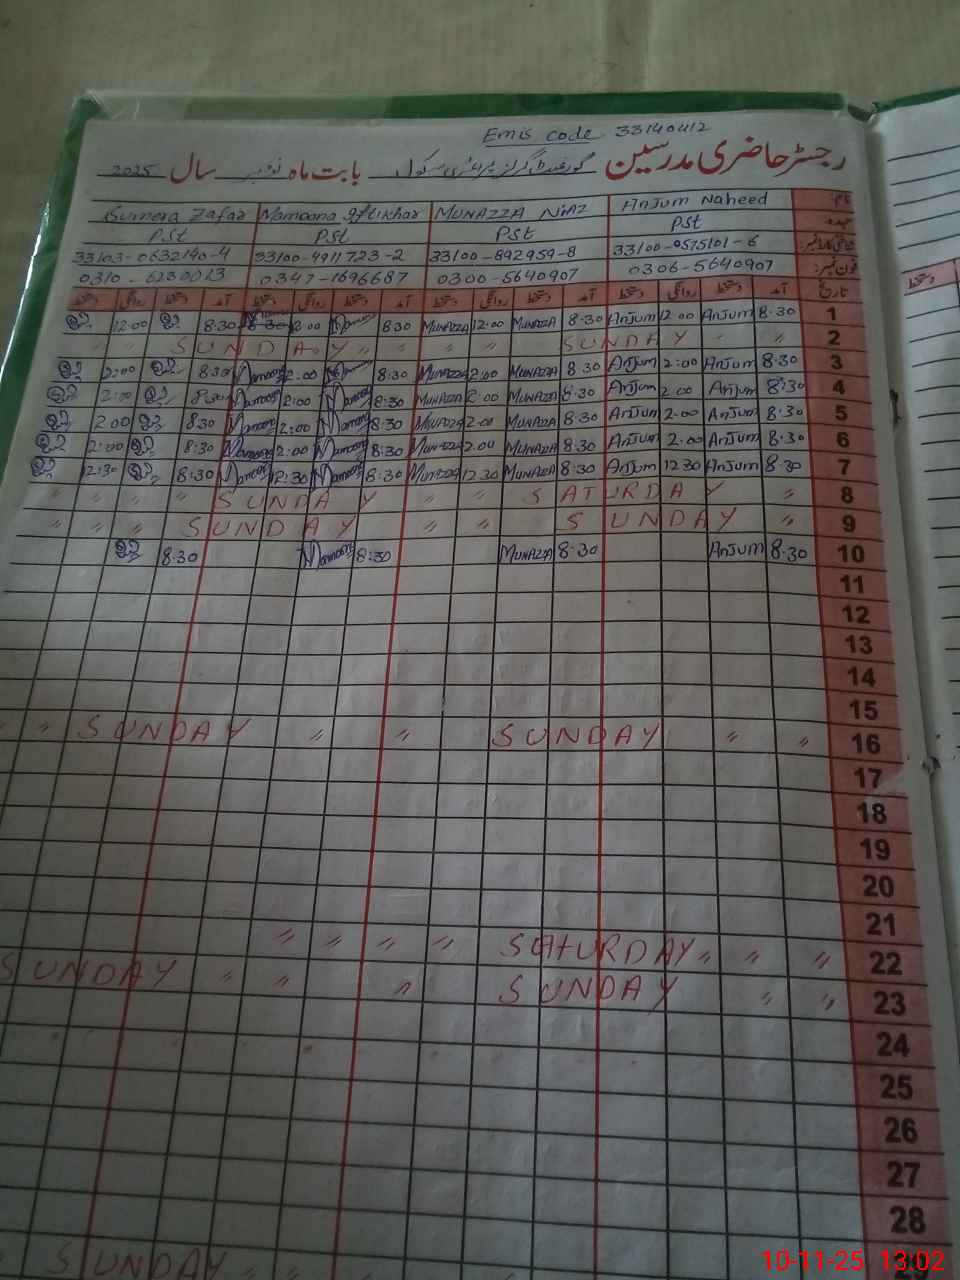 Emis code 33140412
رجسٹر حاضری مدرسین گورنمنٹ گرلز پرائمری سکول بابت ماہ نومبر سال 2025
نام Anjum Naheed MUNAZZA NiAZ Mamoona Iftikhar Sumera Zafar
عہدہ PST PST PST PST
شناختی کارڈ نمبر: 33100-0575101-6 33100-892959-8 33100-4911723-2 33103-0632140-4
فون نمبر: 0306-5640907 0300-5640907 0347-1696687 0310-6230023
تاریخ آمد دستخط روانگی دستخط آمد دستخط روانگی دستخط آمد دستخط روانگی دستخط آمد دستخط روانگی دستخط
1 8:30 Anjum 12:00 Anjum 8:30 MUNAZZA 12:00 MUNAZZA 8:30 8:30 12:00
2 " SUNDAY " " " " SUNDAY " "
3 8:30 Anjum 2:00 Anjum 8:30 MUNAZZA 2:00 MUNAZZA 8:30 2:00 Mamoona 8:30 2:00
4 8:30 Anjum 2:00 Anjum 8:30 MUNAZZA 2:00 MUNAZZA 8:30 Mamoona 2:00 Mamoona 8:30 2:00
5 8:30 Anjum 2:00 Anjum 8:30 MUNAZZA 2:00 MUNAZZA 8:30 Mamoona 2:00 Mamoona 8:30 2:00
6 8:30 Anjum 2:00 Anjum 8:30 MUNAZZA 2:00 MUNAZZA 8:30 Mamoona 2:00 Mamoona 8:30 2:00
7 8:30 Anjum 12:30 Anjum 8:30 MUNAZZA 12:30 MUNAZZA 8:30 Mamoona 12:30 Mamoona 8:30 12:30
8 " SATURDAY " " SUNDAY " " "
9 " SUNDAY " " SUNDAY " " "
10 8:30 Anjum 8:30 MUNAZZA 8:30 Mamoona 8:30
11
12
13
14
15
16 " " SUNDAY " " SUNDAY " "
17
18
19
20
21
22 " " " SATURDAY " " " "
23 " " SUNDAY " " " SUNDAY
24
25
26
27
28
SUNDAY
10-11-25 13:02
دستخط